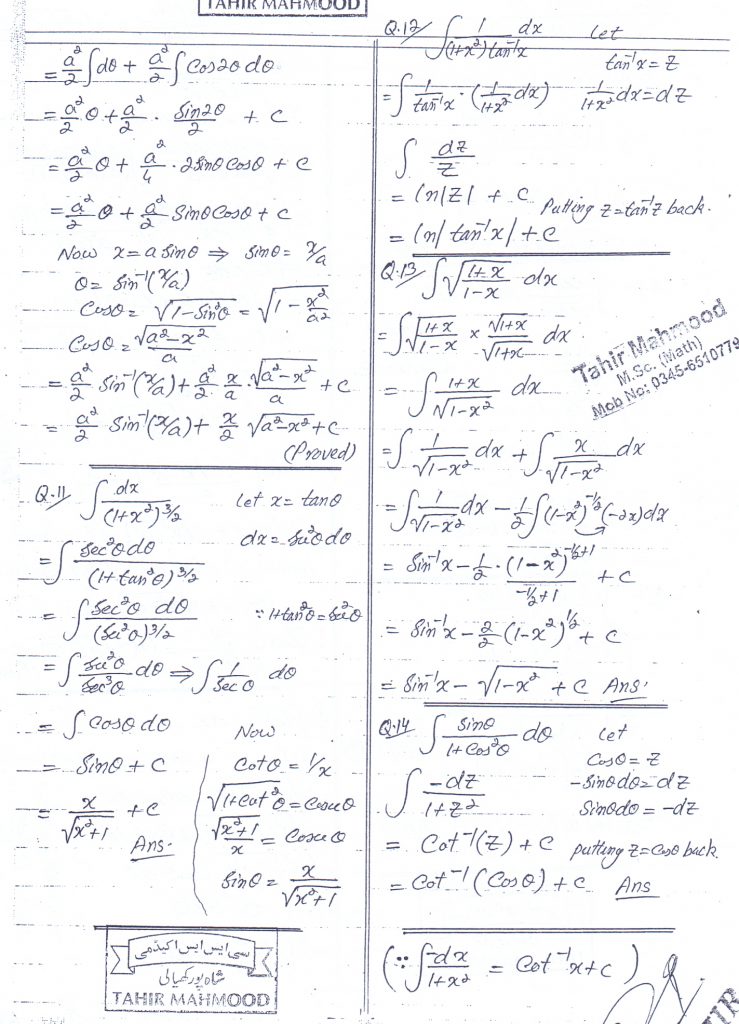 TAHIR MAHMOOD
= a²/2 ∫dθ + a²/2 ∫Cos2θ dθ
= a²/2 θ + a²/2 · Sin2θ/2 + C
= a²/2 θ + a²/4 · 2Sinθ Cosθ + C
= a²/2 θ + a²/2 Sinθ Cosθ + C
Now x = a Sinθ ⇒ Sinθ = x/a
θ = Sin⁻¹(x/a)
Cosθ = √(1-Sin²θ) = √(1 - x²/a²)
Cosθ = √(a²-x²)/a
= a²/2 Sin⁻¹(x/a) + a²/2 · x/a · √(a²-x²)/a + C
= a²/2 Sin⁻¹(x/a) + x/2 √(a²-x²) + C
(Proved)
Q.11 ∫ dx/(1+x²)^3/2 Let x = tanθ
dx = Sec²θ dθ
= ∫ Sec²θ dθ/(1+tan²θ)^3/2
= ∫ Sec²θ dθ/(Sec²θ)^3/2 ∵ 1+tan²θ = Sec²θ
= ∫ Sec²θ/Sec³θ dθ ⇒ ∫ 1/Secθ dθ
= ∫ Cosθ dθ
= Sinθ + C
= x/√(x²+1) + C
Ans.
Now
Cotθ = 1/x
√(1+Cot²θ) = Cosecθ
√(x²+1)/x = Cosecθ
Sinθ = x/√(x²+1)
سی ایس ایس اکیڈمی
شاہ پور کھیالی
TAHIR MAHMOOD
Q.12 ∫ 1/((1+x²)tan⁻¹x) dx Let
tan⁻¹x = Z
= ∫ 1/tan⁻¹x · (1/(1+x²) dx) 1/(1+x²) dx = dZ
∫ dZ/Z
= ln|Z| + C Putting Z = tan⁻¹Z back.
= ln|tan⁻¹x| + C
Q.13 ∫ √((1+x)/(1-x)) dx
= ∫ √(1+x)/√(1-x) × √(1+x)/√(1+x) dx
Tahir Mahmood
M.Sc. (Math)
Mob No: 0345-6510779
= ∫ (1+x)/√(1-x²) dx
= ∫ 1/√(1-x²) dx + ∫ x/√(1-x²) dx
= ∫ 1/√(1-x²) dx - 1/2 ∫(1-x²)^-1/2 (-2x)dx
= Sin⁻¹x - 1/2 · (1-x²)^(-1/2+1)/(-1/2+1) + C
= Sin⁻¹x - 2/2 (1-x²)^1/2 + C
= Sin⁻¹x - √(1-x²) + C Ans.
Q.14 ∫ Sinθ/(1+Cos²θ) dθ Let
Cosθ = Z
∫ -dZ/(1+Z²) -Sinθ dθ = dZ
Sinθ dθ = -dZ
= Cot⁻¹(Z) + C putting Z = Cosθ back.
= Cot⁻¹(Cosθ) + C Ans
(∵ ∫ -dx/(1+x²) = Cot⁻¹x + C)